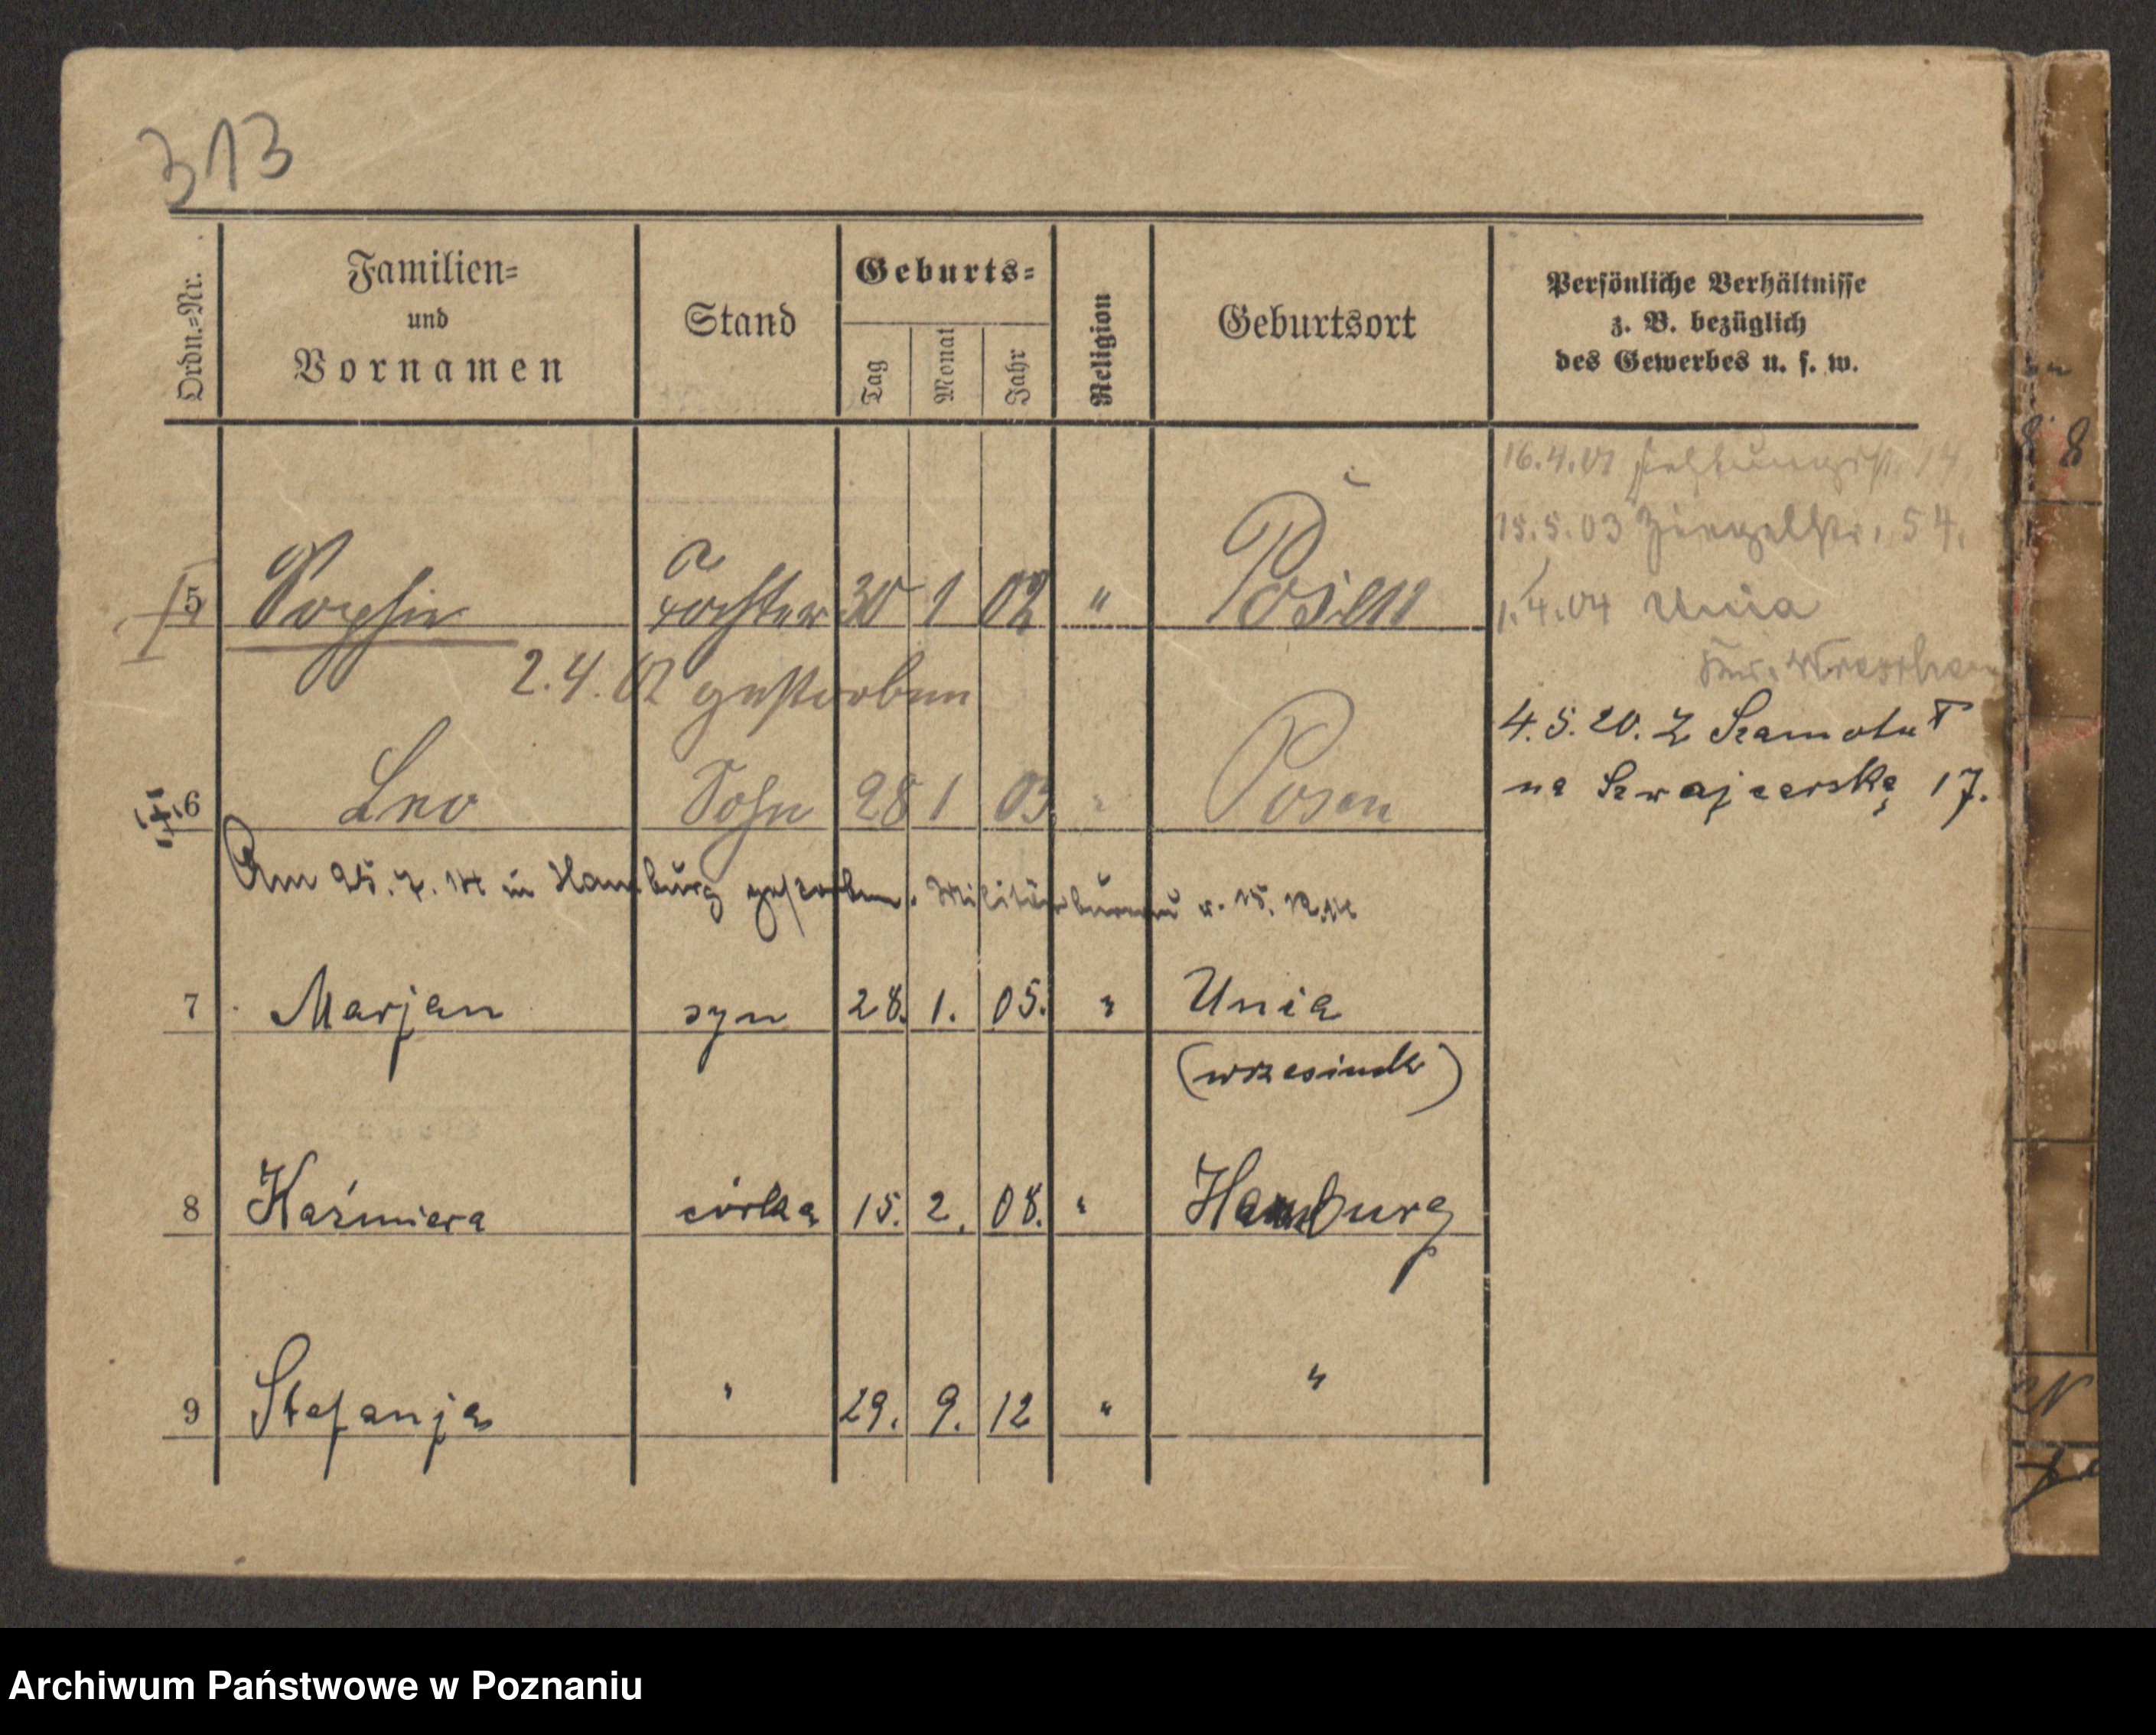 313
Ordn.=Nr.
Familien=
und
Vornamen
Stand
Geburts=
Tag
Monat
Jahr
Religion
Geburtsort
Persönliche Verhältnisse
z. B. bezüglich
des Gewerbes u. s. w.
16.4.01 14
15.5.03 Ziegelstr. 54.
5 Sophie Tochter 30 1 02 " Posen
1.4.04 Unia
Kr. Wreschen
2.4.02 gestorben
4.5.20. Z Szamotuł
na Szwajcarską 17.
6 Leo Sohn 28 1 03 " Posen
Am 25.7.14 in Hamburg gestorben. Militärbureau v. 15.12.14
7 Marjan syn 28. 1. 05. " Unia
(wrzesińsk)
8 Kaźmiera córka 15. 2. 08. " Hamburg
9 Stefanja " 29. 9. 12 " "
Archiwum Państwowe w Poznaniu